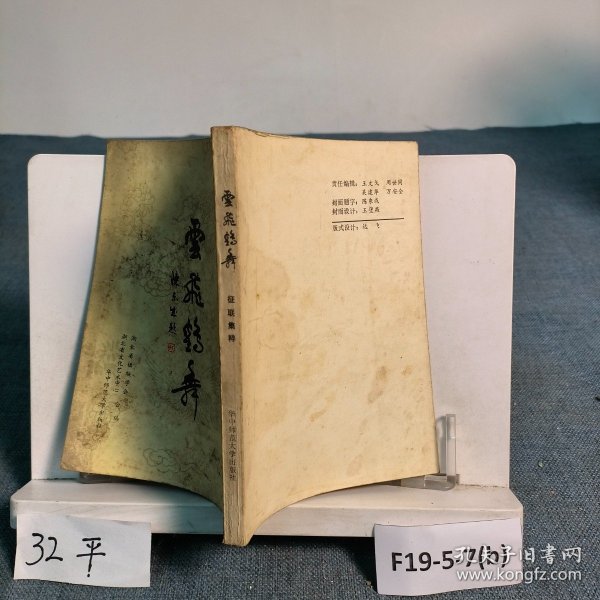 雲飛鶴舞
陈东成题
湖北省楹联学会
湖北省文化艺术中心 合编
华中师范大学出版社
雲飛鶴舞
征联集粹
华中师范大学出版社
责任编辑：王大戈 周世同
吴建萍 万安全
封面题字：陈东成
封面设计：王壁燕
版式设计：达 飞
32 平
F19-5-7(b)
孔夫子旧书网
www.kongfz.com